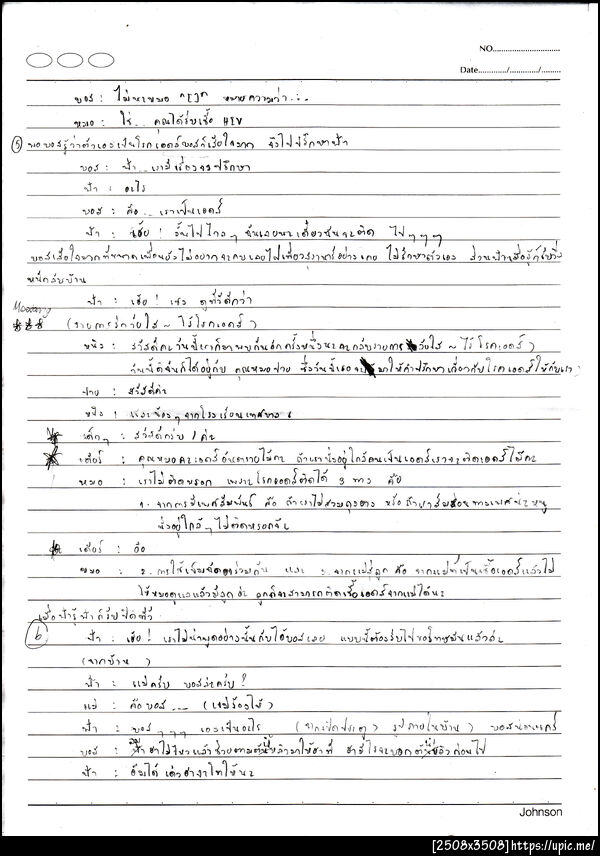 NO.
Date ......./......./.......
บอส : ไม่นะหมอ "เป็น" หมายความว่า...
หมอ : ใช่.. คุณได้รับเชื้อ HIV
⑤ พอบอสรู้ว่าตัวเองเป็นโรคเอดส์บอสก็เสียใจมาก จึงไปปรึกษาฟ้า
บอส : ฟ้า.. เรามีเรื่องจะปรึกษา
ฟ้า : อะไร
บอส : คือ... เราเป็นเอดส์
ฟ้า : เฮ้ย! งั้นไปไกลๆ ฉันเลยนะเดี๋ยวฉันจะติด ไปๆๆๆ
บอสเสียใจมากที่ขนาดเพื่อนยังไม่อยากจะคบเลยไปเที่ยว อย่างเคย ไม่รักษาตัวเอง ส่วนฟ้าเมื่อรู้ก็วิ่ง
หนีกลับบ้าน
ฟ้า : เฮ้ย! เซง ดูทีวีดีกว่า
(รายการวัยใส ~ ไร้โรคเอดส์)
หนิง : สวัสดีค่ะวันนี้เราก็มาพบกันอีกครั้งหนึ่งนะคะกับรายการวัยใส ~ ไร้โรคเอดส์)
วันนี้ดิฉันก็ได้อยู่กับ คุณหมอปาย ซึ่งวันนี้เธอจะมาให้คำปรึกษาเกี่ยวกับโรคเอดส์ให้กับเรา
ปาย : สวัสดีค่ะ
หนิง : และน้องๆจากโรงเรียนเทศบาล
เด็กๆ : สวัสดีครับ / ค่ะ
เดียร์ : คุณหมอคะเอดส์อันตรายไหมคะ ถ้าเรานั่งอยู่ใกล้คนเป็นเอดส์เราจะติดเอดส์ไหมคะ
หมอ : เราไม่ติดหรอก เพราะโรคเอดส์ติดได้ 3 ทาง คือ
1. จากการมีเพศสัมพันธ์ คือ ถ้าเราไม่สวมถุงยาง หรือ ถ้าเราสำส่อนทางเพศน่ะหนู
นั่งอยู่ใกล้ๆ ไม่ติดหรอกจ้ะ
เดียร์ : อ๋อ
หมอ : 2. การใช้เข็มฉีดยาร่วมกัน และ 3. จากแม่สู่ลูก คือ จากแม่ที่เป็นเชื้อเอดส์แล้วไม่
ให้หมอดูแลแล้วมีลูก ลูกก็จะสามารถติดเชื้อเอดส์จากแม่ได้นะ
เมื่อฟ้ารู้ฟ้าก็รีบปิดทีวี
⑥ ฟ้า : เฮ้ย! เราไม่น่าพูดอย่างนั้นกับไอ้บอสเลย แบบนี้ต้องรีบไปขอโทษมันแล้วล่ะ
(จากบ้าน )
ฟ้า : แม่ครับ บอสล่ะครับ?
แม่ : คือบอส .... (แม่ร้องไห้)
ฟ้า : บอสๆๆๆ เองเป็นอะไร (จากเปิดประตู → รูปภายในบ้าน)
บอส : ฟ้าข้าไม่ไหวแล้ว
ฟ้า : อ้อได้ เดี๋ยวข้าจะโทให้นะ
Johnson
[2508x3508]https://upic.me/